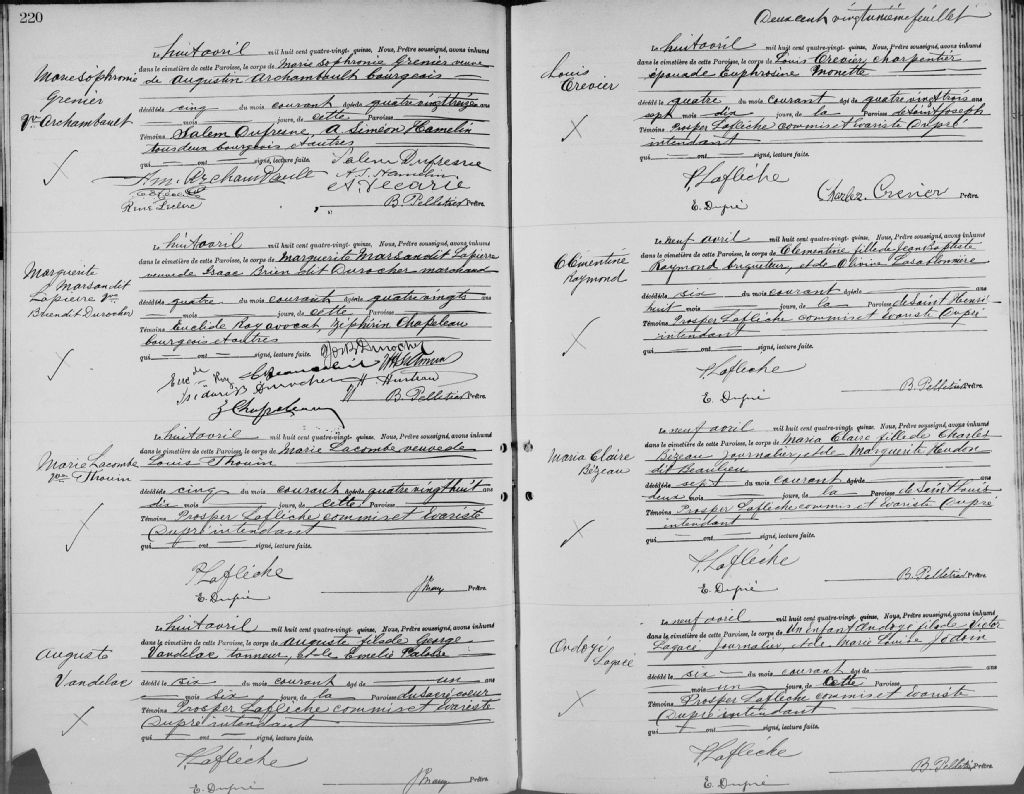 220
Marie Sophronie
Grenier
Vve Archambault
Le huit avril mil huit cent quatre-vingt- quinze, Nous, Prêtre soussigné, avons inhumé
dans le cimetière de cette Paroisse, le corps de Marie Sophronie Grenier veuve
de Augustin Archambault bourgeois
décédée cinq du mois courant âgée de quatre vingt treize ans
mois jours, de cette Paroisse
Témoins Salem Dufresne, A Siméon Hamelin
tous deux bourgeois et autres
qui ont signé, lecture faite.
Salem Dufresne
A. S. Hamelin
René Leclerc
B. Pelletier Prêtre.
Marguerite
Marsan dit
Lapierre Vve
Brien dit Durocher
Le huit avril mil huit cent quatre-vingt- quinze, Nous, Prêtre soussigné, avons inhumé
dans le cimetière de cette Paroisse, le corps de Marguerite Marsan dit Lapierre
veuve de Isaac Brien dit Durocher marchand
décédée quatre du mois courant âgée de quatre vingts ans
mois jours, de cette Paroisse
Témoins Euclide Roy avocat, Zéphirin Chapeleau
bourgeois et autres
qui ont signé, lecture faite.
Euc. de Roy
Isidore B Durocher
B. Pelletier Prêtre.
Z Chapeleau
Marie Lacombe
Vve Thouin
Le huit avril mil huit cent quatre-vingt- quinze, Nous, Prêtre soussigné, avons inhumé
dans le cimetière de cette Paroisse, le corps de Marie Lacombe veuve de
Louis Thouin
décédée cinq du mois courant âgée de quatre vingt huit ans
dix mois jours, de cette Paroisse
Témoins Prosper Laflèche commis et Evariste
Dupré intendant
qui ont signé, lecture faite.
P. Laflèche
E. Dupré
Prêtre.
Auguste
Vandelac
Le huit avril mil huit cent quatre-vingt- quinze, Nous, Prêtre soussigné, avons inhumé
dans le cimetière de cette Paroisse, le corps de Auguste fils de George
Vandelac tanneur, et de Emelie
décédé six du mois courant âgé de un ans
mois six jours, de la Paroisse du Sacré coeur
Témoins Prosper Laflèche commis et Evariste
Dupré intendant
qui ont signé, lecture faite.
P. Laflèche
E. Dupré
Prêtre.
Deux cent vingt unième feuillet
Louis
Crevier
Le huit avril mil huit cent quatre-vingt- quinze, Nous, Prêtre soussigné, avons inhumé
dans le cimetière de cette Paroisse, le corps de Louis Crevier, charpentier
époux de Euphrosine Monette
décédé le quatre du mois courant âgé de quatre vingt trois ans
sept mois dix jours, de la Paroisse de Saint Joseph
Témoins Prosper Laflèche commis et Evariste Dupré
intendant
qui ont signé, lecture faite.
P. Laflèche
E. Dupré
Charles Crevier Prêtre.
Clémentine
Raymond
Le neuf avril mil huit cent quatre-vingt- quinze, Nous, Prêtre soussigné, avons inhumé
dans le cimetière de cette Paroisse, le corps de Clementine fille de Jean Baptiste
Raymond briqueteur, et de Olivine Lasablonnière
décédée six du mois courant âgée de ans
huit mois jours, de la Paroisse de Saint Henri
Témoins Prosper Laflèche commis et Evariste Dupré
intendant
qui ont signé, lecture faite.
P. Laflèche
E. Dupré
B. Pelletier Prêtre.
Maria Claire
Bézeau
Le neuf avril mil huit cent quatre-vingt- quinze, Nous, Prêtre soussigné, avons inhumé
dans le cimetière de cette Paroisse, le corps de Maria Claire fille de Charles
Bézeau journalier, et de Marguerite Houdon
dit Beaulieu
décédée sept du mois courant âgée de ans
deux mois jours, de la Paroisse de Saint Louis
Témoins Prosper Laflèche commis et Evariste Dupré
intendant
qui ont signé, lecture faite.
P. Laflèche
E. Dupré
B. Pelletier Prêtre.
Ondoyé
Lagacé
Le neuf avril mil huit cent quatre-vingt- quinze, Nous, Prêtre soussigné, avons inhumé
dans le cimetière de cette Paroisse, le corps de Un enfant Ondoyé fils de Victor
Lagacé journalier, et de Marie Louise Jodoin
décédé six du mois courant âgé de ans
mois un jours, de cette Paroisse
Témoins Prosper Laflèche commis et Evariste
Dupré intendant
qui ont signé, lecture faite.
P. Laflèche
E. Dupré
B. Pelletier Prêtre.